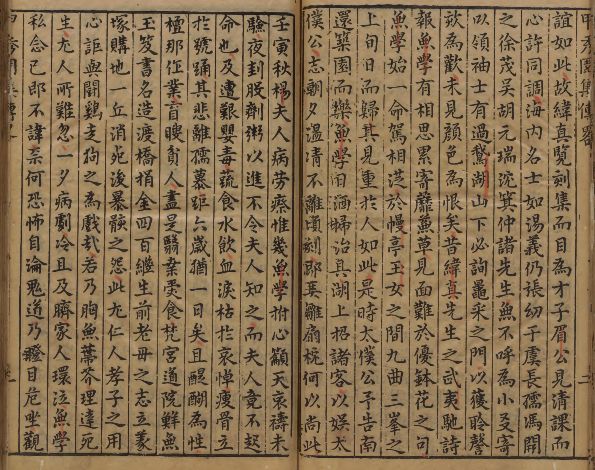 誼如此故緯真覽刻集而目為才子眉公見清課而
心許同調海內名士如湯義仍張幼于虞長孺馮開
之徐茂吴胡元瑞沈箕仲諸先生魚不呼為小友寄
以領袖士有過鶖湖山下必詢鼂采之門以獲聆謦
欬為歡未見顏色為恨矣昔緯真先生之武夷馳詩
報魚學有相思累寄蘼魚草見面難於優鉢花之句
魚學始一命駕相從於幔亭玉女之間九曲三峯之
上旬日而歸其見重於人如此是時太僕公予告南
還築園而樂魚學日洒埽治具湖上招諸客以娱太
僕公志朝夕温凊不離頃刻即耍雛扇枕何以尚此
壬寅秋楊夫人病劳瘵惟幾魚學拊心籲天哀禱未
驗夜刲股劑粥以進不令夫人知之而夫人竟不起
命也及遭艱毀毒蔬食水飲血淚枯於哀悼瘦骨立
於號踊其悲離孺慕距六歲猶一日矣且醍醐為性
檀那作業盲瞍貧人盡是翳桑受食梵宮道院鮮魚
玉笈書名造渡橋捐金四百繼生前老母之志立義
塚購地一丘消死後暴骸之怨此尤仁人孝子之用
心詎與鬬鷄走狗之為戲哉若乃胸魚蔕芥理達死
生尤人所難忽一夕病劇冷且及臍家人環泣魚學
私念已即不諱奈何恐怖自淪鬼道乃瞪目危坐觀